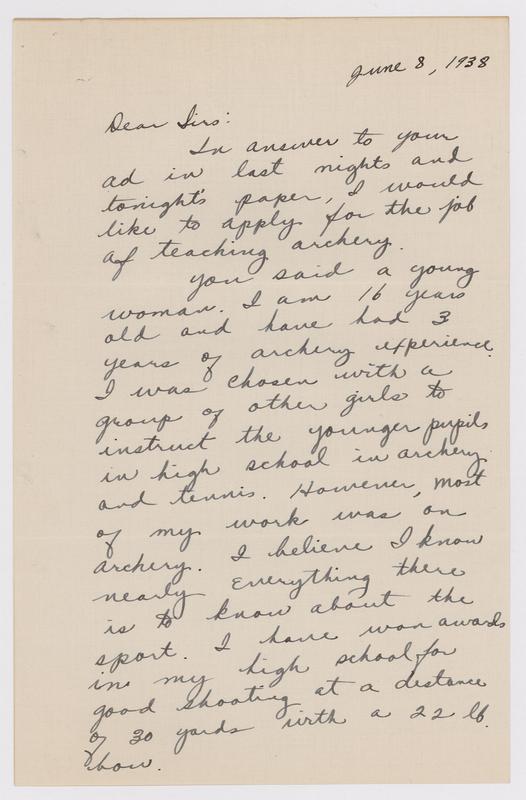 June 8, 1938
Dear Sirs:
In answer to your
ad in last nights and
tonight's paper, I would
like to apply for the job
of teaching archery.
You said a young
woman. I am 16 years
old and have had 3
years of archery experience.
I was chosen with a
group of other girls to
instruct the younger pupils
in high school in archery
and tennis. However, most
of my work was on
archery. I believe I know
nearly everything there
is to know about the
sport. I have won awards
in my high school for
good shooting at a distance
of 30 yards with a 22 lb.
bow.